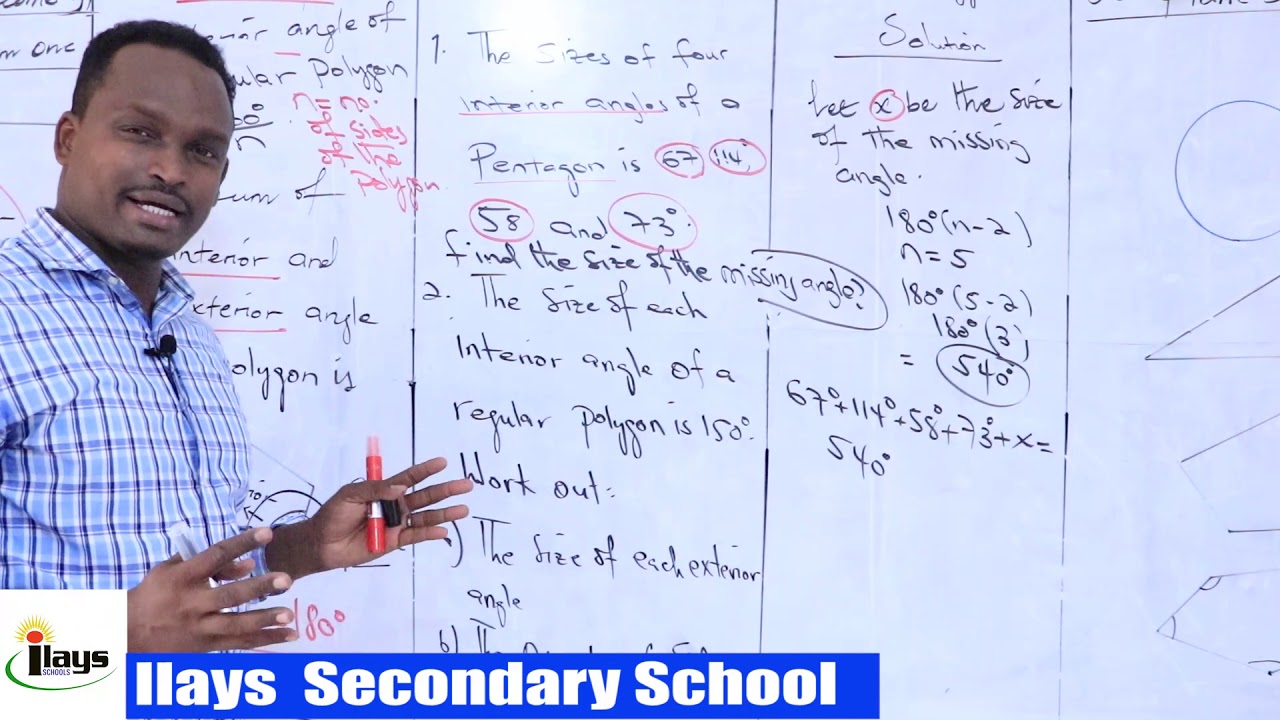 m one
angle of
Polygon
n = no.
of sides
of the
polygon
n
um of
interior and
xterior angle
olygon is
180°
1. The Sizes of four
interior angles of a
Pentagon is 67, 114,
58 and 73°.
find the size of the missing angle?
2. The Size of each
Interior angle of a
regular polygon is 150°.
Work out:
) The Size of each exterior
angle
b) The
Solution
Let x be the size
of the missing
angle.
180°(n-2)
n = 5
180°(5-2)
180°(3)
= 540°
67°+114°+58°+73°+x=
540°
ilays
SCHOOLS
Ilays Secondary School